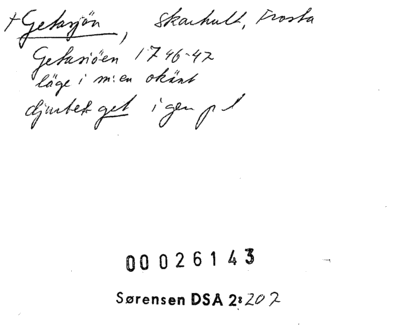 + Getasjön, Skarhult, Frosta
Getasiöen 1746-47
läge i sn:en okänt
djurbet. get i gen pl
00 026143
Sørensen DSA 2:202